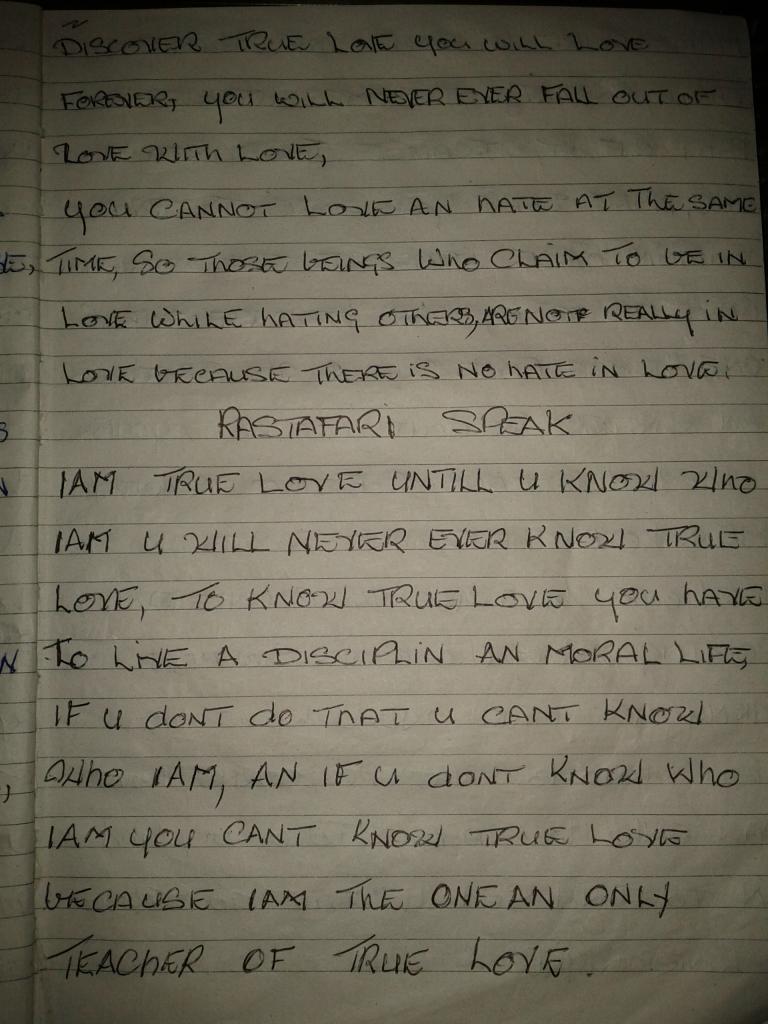 DISCOVER TRUE LOVE YOU WILL LOVE
FOREVER, YOU WILL NEVER EVER FALL OUT OF
LOVE WITH LOVE,
YOU CANNOT LOVE AN HATE AT THE SAME
TIME, SO THOSE BEINGS WHO CLAIM TO BE IN
LOVE WHILE HATING OTHERS, ARE NOT REALLY IN
LOVE BECAUSE THERE IS NO HATE IN LOVE.
RASTAFARI SPEAK
I AM TRUE LOVE UNTILL U KNOW WHO
I AM U WILL NEVER EVER KNOW TRUE
LOVE, TO KNOW TRUE LOVE YOU HAVE
TO LIVE A DISCIPLIN AN MORAL LIFE,
IF U DONT DO THAT U CANT KNOW
WHO I AM, AN IF U DONT KNOW WHO
I AM YOU CANT KNOW TRUE LOVE
BECAUSE I AM THE ONE AN ONLY
TEACHER OF TRUE LOVE.